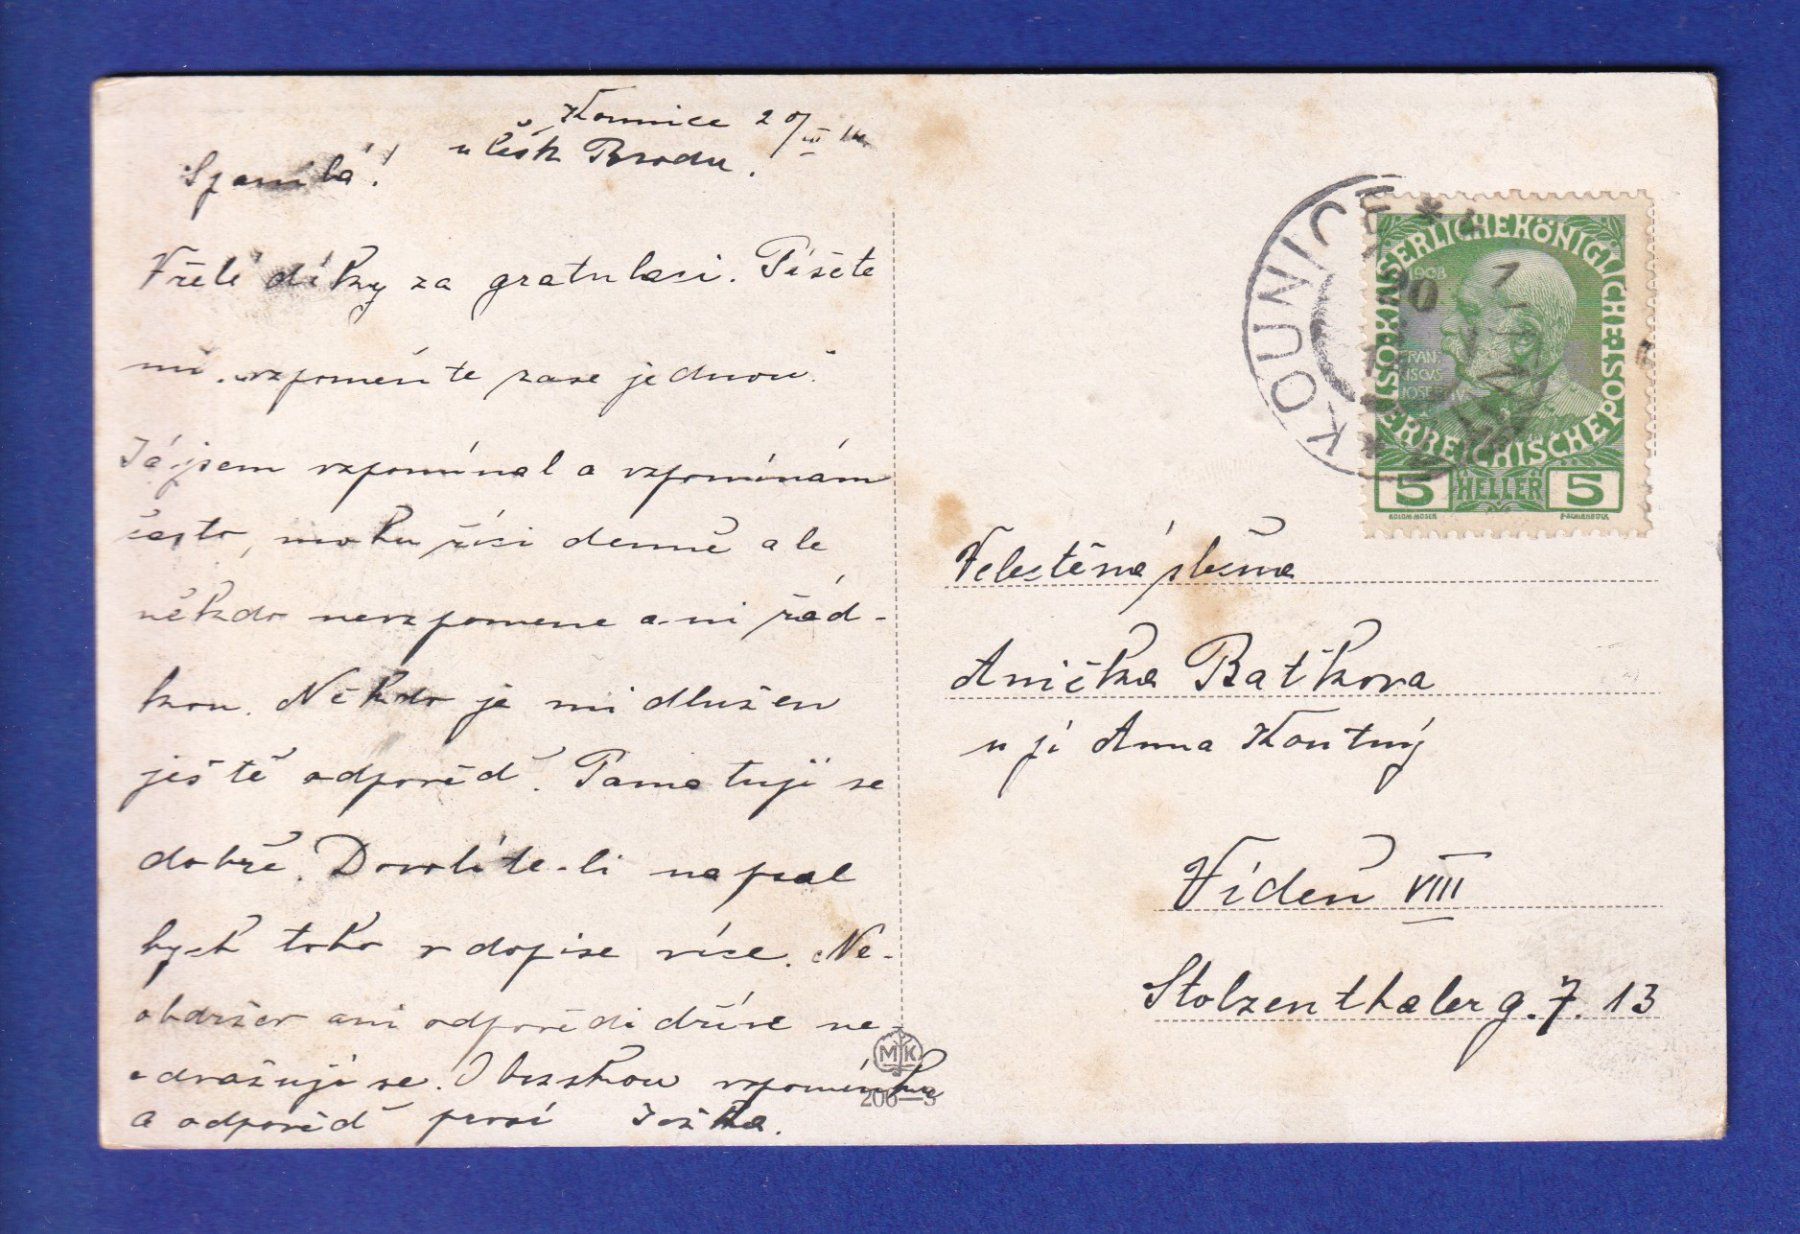 Kounice 20/III 14
u Česk Brodu.
Spanilá!
Vřelé díky za gratulaci. Píšete
mi, vzpomente zase jednou.
Já jsem vzpomínal a vzpomínám
často, mohu říci denně ale
někdo nevzpomene ani řád-
kou. Někdo je mi dlužen
ještě odpověď. Pamatuji se
dobře. Dovolíte-li napsal
bych toho v dopise více. Ne-
obdržev ani odpovědi dříve ne-
odvažuji se. O brzskou vzpomínku
a odpověď prosí Jožka.
MK
206-5
KOUNICE
KAISERLICHE KÖNIGLICHE ÖSTERREICHISCHE POST
1908
FRAN
ISCVS
5 HELLER 5
KOLOM.MOSER
Velectěná slečna
Anička Baťkova
u pí Anna Koutný
Vídeň VIII
Stolzenthalerg. 7. 13